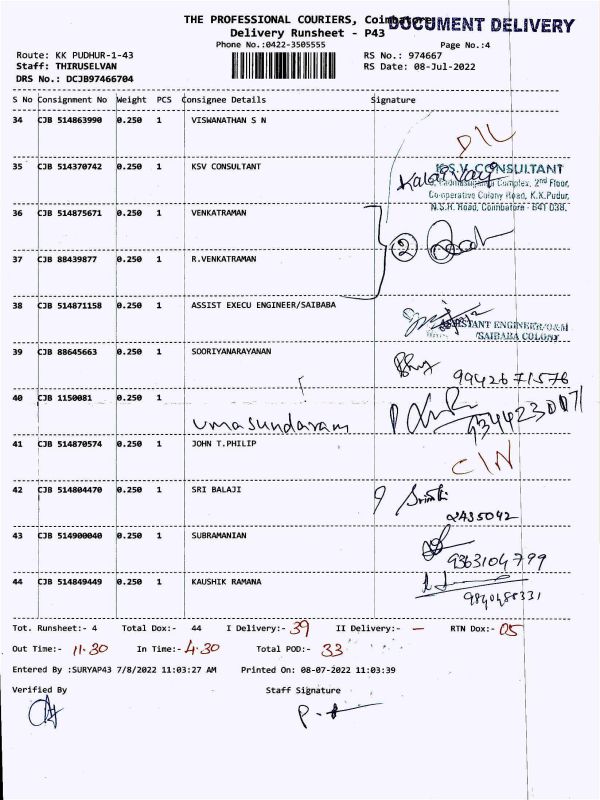 THE PROFESSIONAL COURIERS, Coimbatore
DOCUMENT DELIVERY
Delivery Runsheet - P43
Phone No.:0422-3505555
Page No.:4
Route: KK PUDHUR-1-43
RS No.: 974667
Staff: THIRUSELVAN
RS Date: 08-Jul-2022
DRS No.: DCJB97466704
S No Consignment No Weight PCS Consignee Details Signature
34 CJB 514863990 0.250 1 VISWANATHAN S N
D/L
35 CJB 514370742 0.250 1 KSV CONSULTANT
K.S.V. CONSULTANT
Complex, 2nd Floor,
Co-operative Colony Road, K.K.Pudur,
N.S.R. Road, Coimbatore - 641 038.
36 CJB 514875671 0.250 1 VENKATRAMAN
2
37 CJB 88439877 0.250 1 R.VENKATRAMAN
38 CJB 514871158 0.250 1 ASSIST EXECU ENGINEER/SAIBABA
ASSISTANT ENGINEER/O&M
SAIBABA COLONY
39 CJB 88645663 0.250 1 SOORIYANARAYANAN
9942671576
40 CJB 1150081 0.250 1
umasundaram
41 CJB 514870574 0.250 1 JOHN T.PHILIP
C/N
42 CJB 514804470 0.250 1 SRI BALAJI
2435042
43 CJB 514900040 0.250 1 SUBRAMANIAN
9363104799
44 CJB 514849449 0.250 1 KAUSHIK RAMANA
Tot. Runsheet:- 4 Total Dox:- 44 I Delivery:- 39 II Delivery:- — RTN Dox:- 05
Out Time:- 11.30 In Time:- 4.30 Total POD:- 33
Entered By :SURYAP43 7/8/2022 11:03:27 AM Printed On: 08-07-2022 11:03:39
Verified By Staff Signature